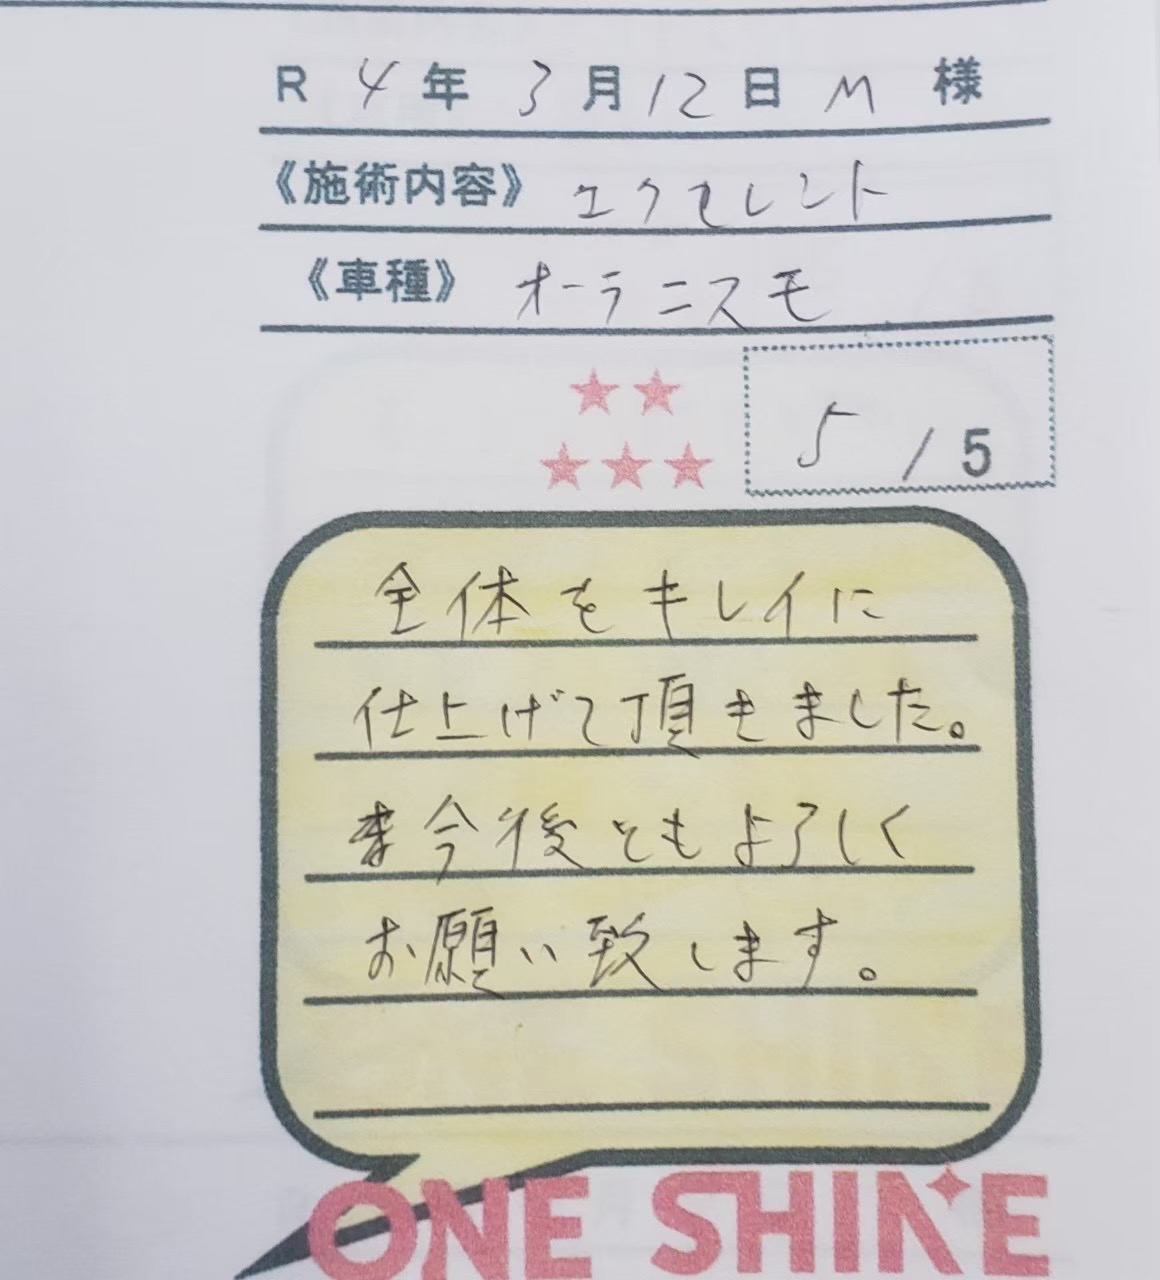 R 4年 3月12日 M 様
《施術内容》 エクセレント
《車種》 オーラニスモ
★★
★★★
5 / 5
全体をキレイに
仕上げて頂きました。
今後ともよろしく
お願い致します。
ONE SHINE